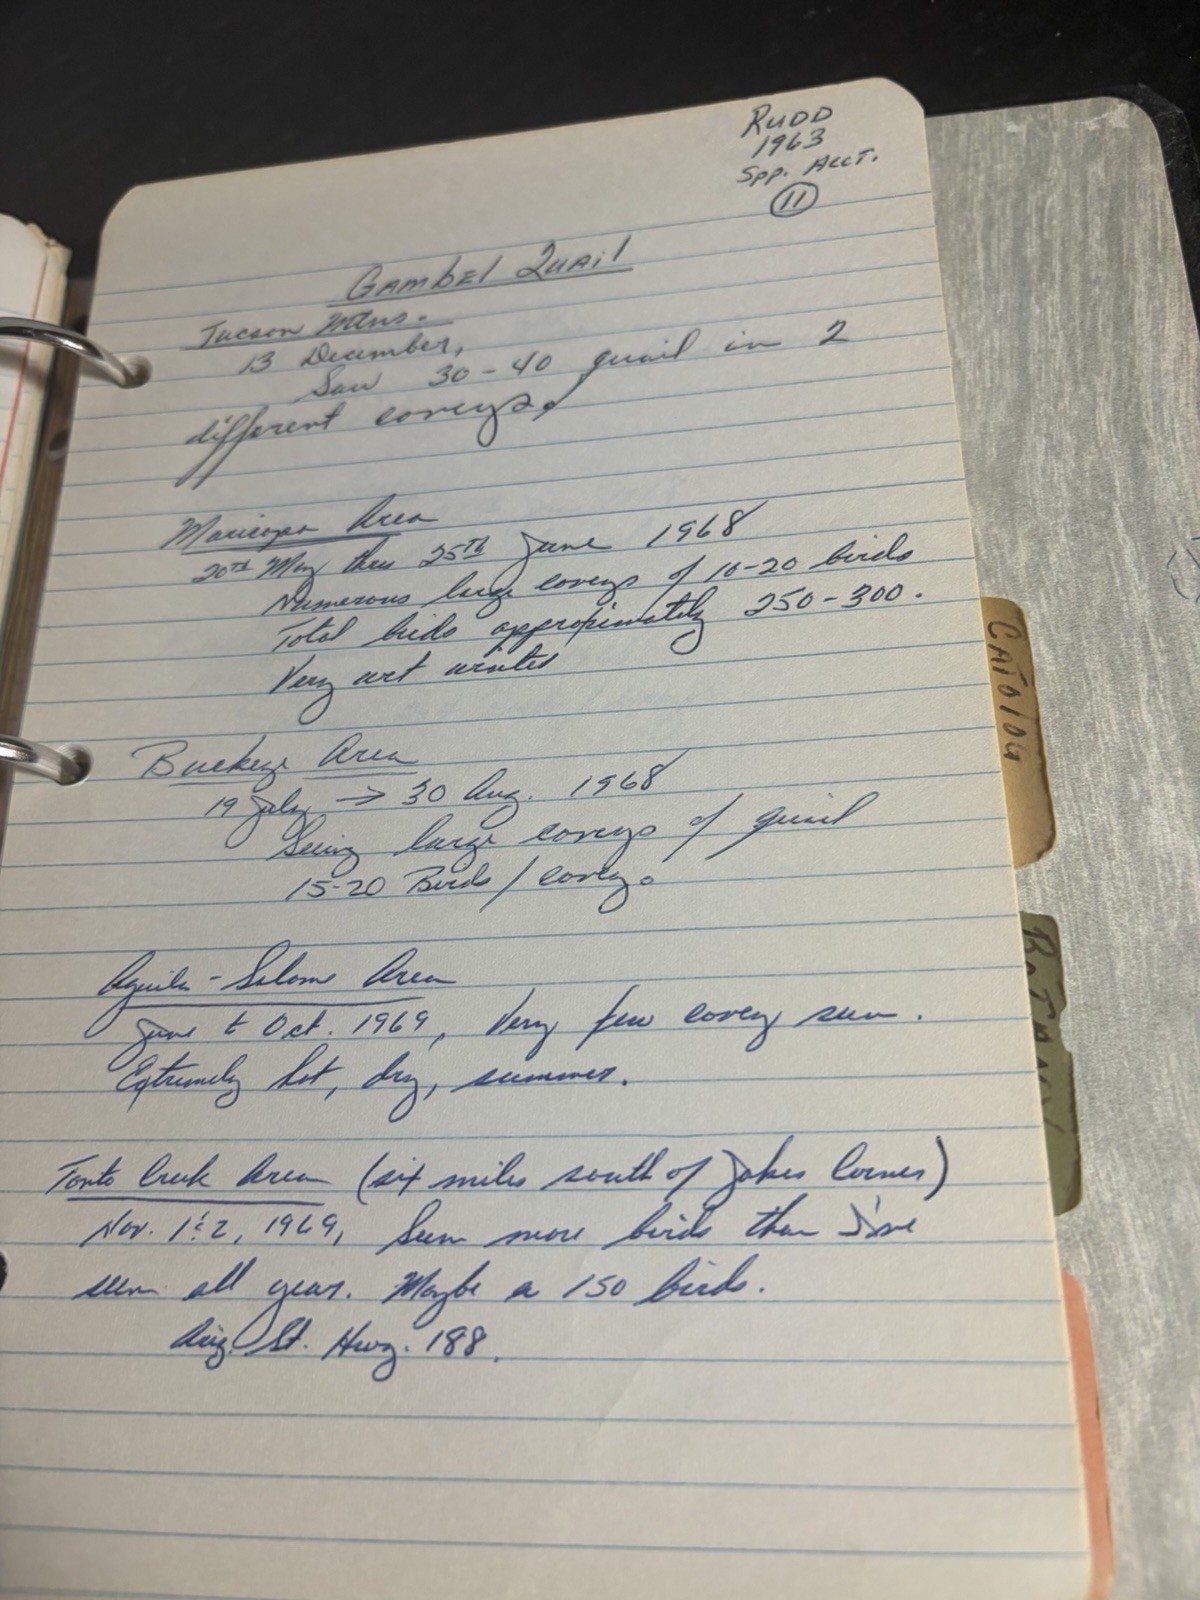 RUDD
1963
Spp. Acct.
11
Gambel Quail
Tucson Mtns.
13 December,
Saw 30-40 quail in 2
different coveys.
Maricopa Area
20th May thru 25th June 1968
Numerous large coveys of 10-20 birds
Total birds approximately 250-300.
Very wet winter
Buckeye Area
19 July → 30 Aug. 1968
Seeing large coveys of quail
15-20 Birds/covey.
Aguila-Salome Area
June to Oct. 1969, Very few covey seen.
Extremely hot, dry, summer.
Tonto Creek Area (six miles south of Jakes Corner)
Nov. 1&2, 1969, Seen more birds than I've
seen all year. Maybe a 150 birds.
Ariz. St. Hwy. 188.
CATOlOG
BOTANY